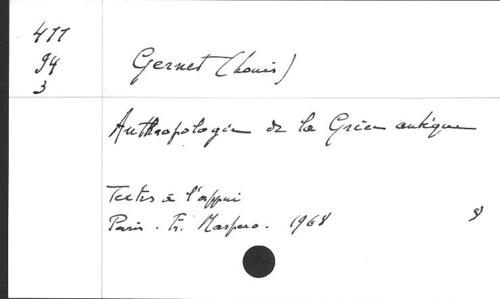 477
94
3
Gernet (Louis)
Anthropologie de la Grèce antique
Textes à l'appui
Paris. Fr. Maspero. 1968
8